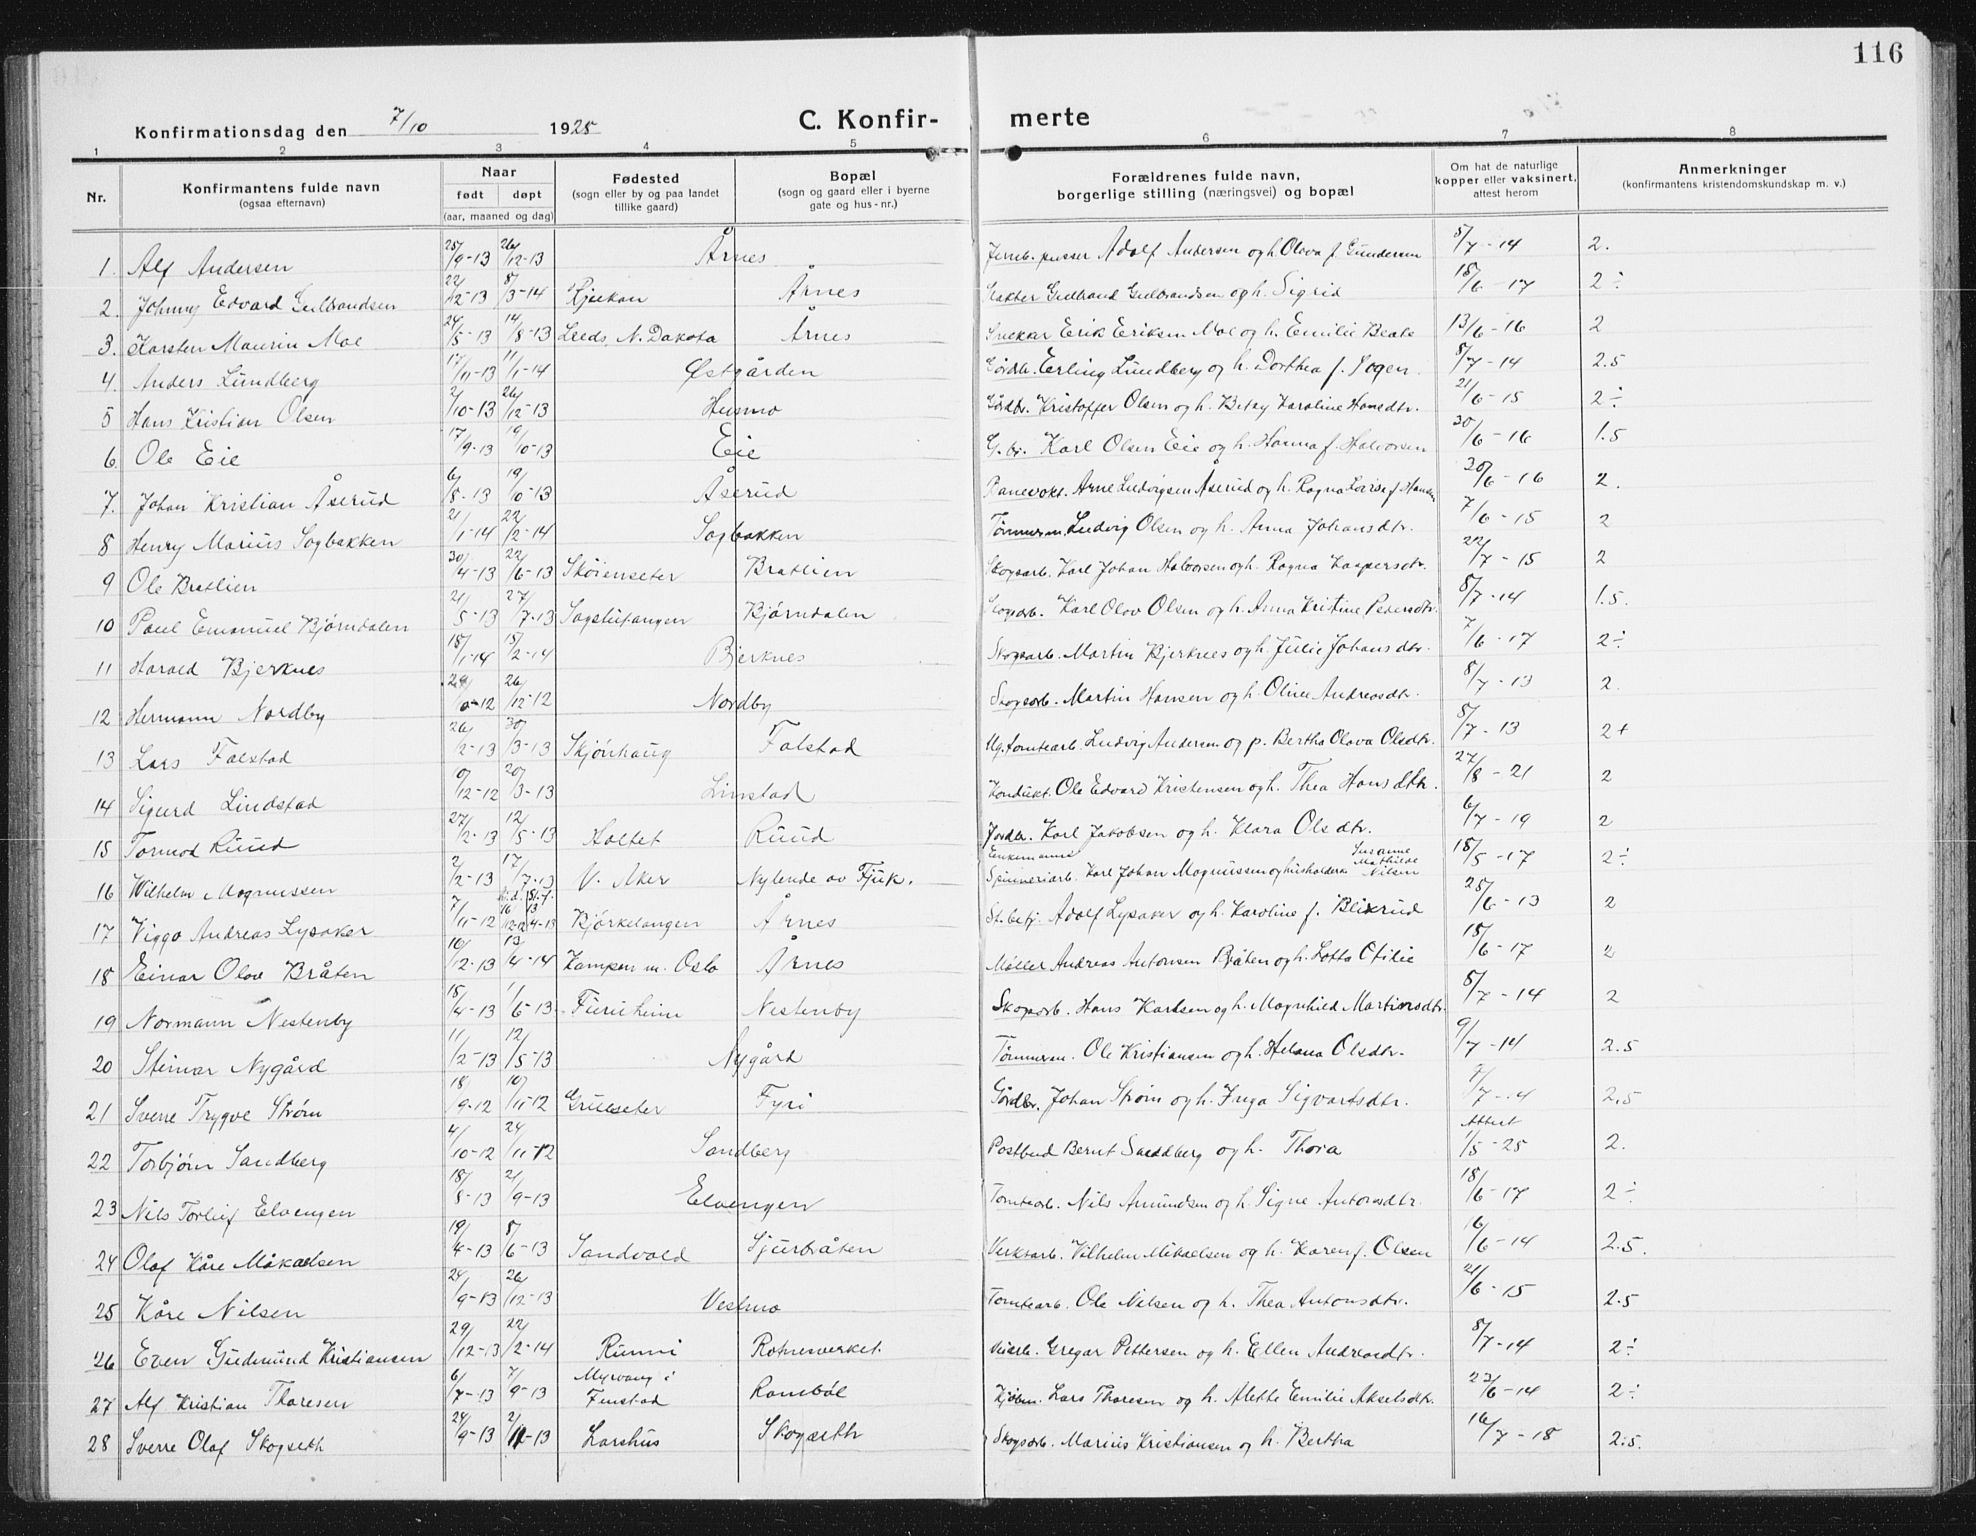 116
Konfirmationsdag den 7/10 1928 C. Konfirmerte
1 2 3 4 5 6 7 8
Nr. Konfirmantens fulde navn (ogsaa efternavn) Naar født døpt (aar, maaned og dag) Fødested (sogn eller by og paa landet tillike gaard) Bopæl (sogn og gaard eller i byerne gate og hus-nr.) Forældrenes fulde navn, borgerlige stilling (næringsvei) og bopæl Om hat de naturlige kopper eller vaksinert, attest herom Anmerkninger (konfirmantens kristendomskundskap m. v.)
1. Alf Andersen 25/9-13 26/12-13 Årnes Jernb. pusser Adolf Andersen og h. Olava f. Gundersen 5/7-14 2.
2. Johnny Edvard Gulbrandsen 22/12-13 8/3-14 Rjukan Årnes Slakter Gudbrand Gulbrandsen og h. Sigrid 18/6-17 2÷
3. Karsten Maurin Moe 24/5-13 14/8-13 Leeds, N. Dakota Årnes Snekker Erik Eriksen Moe og h. Emilie Beate 13/6-16 2
4. Anders Lundberg 17/11-13 11/1-14 Østgården Gårdbr. Erling Lundberg og h. Dorthea f. Jogen. 8/7-14 2.5
5 Hans Kristian Olsen 2/10-13 26/12-13 Husmo Gårdbr. Kristoffer Olsen og h. Betzy Karoline Hansdtr. 21/6-15 2÷
6. Ole Eie 17/9-13 19/10-13 Eie G.br. Karl Olsen Eie og h. Hanna f. Halvorsen 30/6-16 1.5
7. Johan Kristian Åserud 6/8-13 19/10-13 Åserud Banevokt. Arne Ludvigsen Åserud og h. Ragna Lovise f. Hansen 20/6-16 2.
8 Henry Marius Sagbakken 21/1-14 22/2-14 Sagbakken Tømmerm. Ludvig Olsen og h. Anna Johansdtr. 7/6-15 2
9 Ole Bratlien 30/4-13 22/6-13 Skøienseter Bratlien Skogsarb. Karl Johan Halvorsen og h. Ragna Kaspersdtr. 22/7-15 2
10 Paul Emanuel Bjørndalen 21/5-13 27/7-13 Sagstutangen Bjørndalen Skogsarb. Karl Olov Olsen og h. Anna Kristine Petersdtr. 8/7-14 1.5.
11 Harald Bjerknes 18/1-14 15/2-14 Bjerknes Skogsarb. Martin Bjerknes og h. Julie Johansdtr. 7/6-17 2÷
12 Hermann Nordby 29/10-12 26/12-12 Nordby Skogsarb. Martin Hansen og h. Oline Andreasdtr. 8/7-13 2.
13 Lars Falstad 26/2-13 30/3-13 Skjønhaug Falstad Ug. tomtearb. Ludvig Andersen og p. Bertha Olava Olsdtr. 8/7-13 2+
14 Sigurd Lindstad 10/12-12 20/3-13 Linstad Kondukt. Ole Edvard Kristensen og h. Thea Hansdtr. 27/8-21 2
15 Tormod Ruud 27/2-13 12/5-13 Holtet Ruud Jordbr. Karl Jakobsen og h. Klara Olsdtr. 6/7-19 2
16 Wilhelm Magnussen 2/2-13 17/7-13 V. Aker Nylende av Fjuk. Enkemann Spinneriarb. Karl Johan Magnussen og husholderske Susanne Mathilde Nilsen 18/5-17 2÷
17 Viggo Andreas Lysaker 7/11-12 16/12-12 13/4-13 Bjørkelangen Årnes St.betj. Adolf Lysaker og h. Karoline f. Blixrud 25/6-13 2
18 Einar Olav Bråten 16/12-13 13/4-14 Kampen m. Oslo Årnes Møller Andreas Antonsen Bråten og h. Lotta Otilie 15/6-17 2
19 Normann Nestenby 15/4-13 1/6-13 Furuheim Nestenby Skogsarb. Hans Karlsen og h. Magnhild Martinsdtr. 8/7-14 2
20 Steinar Nygård 11/2-13 12/5-13 Nygård Tømmerm. Ole Kristiansen og h. Helena Olsdtr. 9/7-14 2.5
21 Sverre Trygve Strøm 18/9-12 10/11-12 Grueseter Fyri Gårdbr. Johan Strøm og h. Inga Sigvartsdtr. 7/7-14 2.5
22 Torbjørn Sandberg 4/10-12 24/11-12 Sandberg Postbud Bernt Sanddberg og h. Thora Attest 1/5-25 2.
23 Nils Torleif Elvengen 18/8-13 21/9-13 Elvengen Tomtearb. Nils Amundsen og h. Signe Antonsdtr. 18/6-17 2÷
24 Olaf Kåre Mikaelsen 19/4-13 8/6-13 Sandvold Sjurbråten Verkstarb. Vilhelm Mikaelsen og h. Karen f. Olsen 16/6-14 2.5.
25 Kåre Nilsen 24/9-13 26/12-13 Vestmo Tomtearb. Ole Nilsen og h. Thea Antonsdtr. 21/6-15 2.5
26 Even Gudmund Kristiansen 29/12-13 22/2-14 Runni Rotnesverket. Veiarb. Gregar Pettersen og h. Ellen Andreasdtr. 8/7-14 2÷
27 Alf Kristian Thoresen 6/7-13 7/9-13 Myrvang i Fenstad Rombøl Kjøbm. Lars Thoresen og h. Alette Emilie Akselsdtr. 22/6-14 2÷
28 Sverre Olaf Skogseth 24/9-13 2/11-13 Larshus Skogseth Skogsarb. Marius Kristiansen og h. Bertha 16/7-18 2.5.